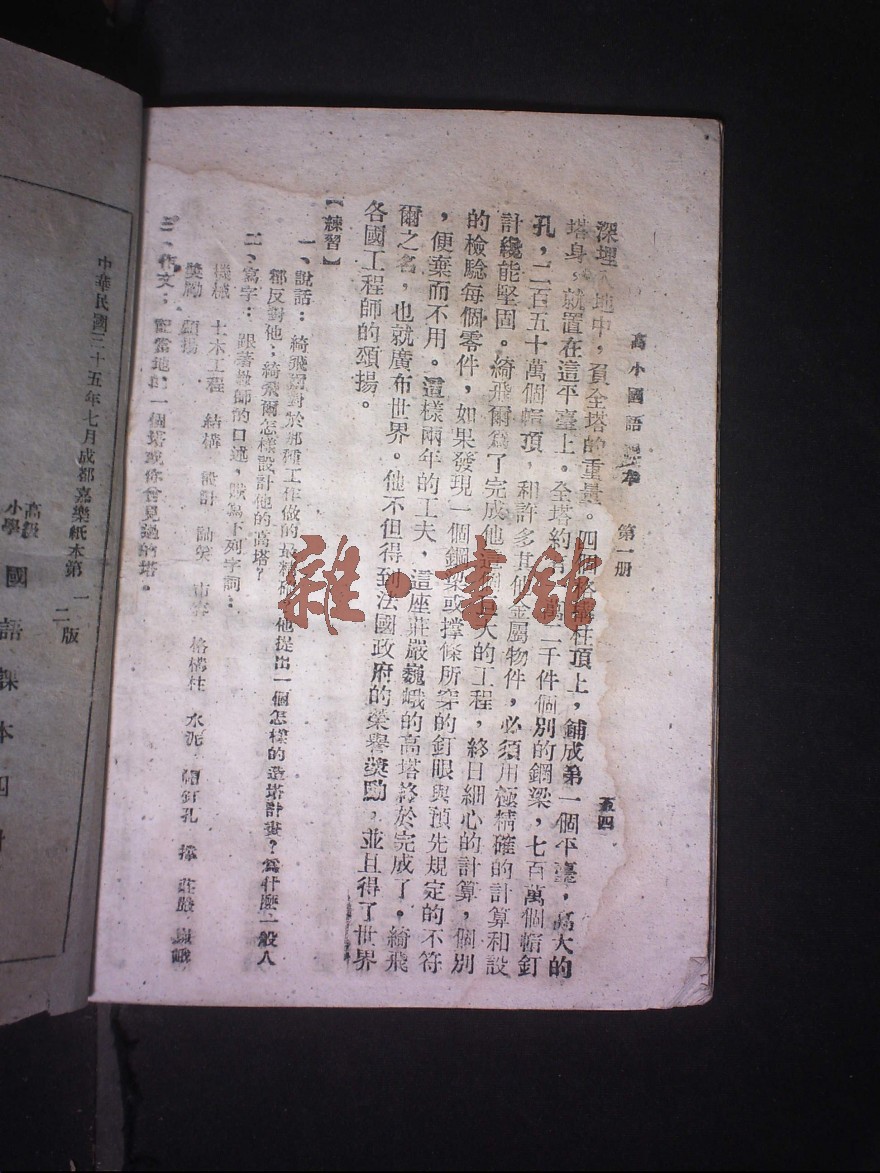 高小國語課本 第一册 五四
深埋地中，負全塔的重量。四個格構柱項上，鋪成第一個平臺，高大的
塔身，就置在這平臺上。全塔約有二千件個別的鋼梁，七百萬個帽釘
孔，二百五十萬個帽項，和許多其他金屬物件，必須用極精確的計算和設
計纔能堅固。綺飛爾爲了完成他這個巨大的工程，終日細心的計算，個別
的檢驗每個零件，如果發現一個鋼梁或撑條所穿的釘眼與預先規定的不符
，便棄而不用。這樣兩年的工夫，這座莊嚴巍峨的高塔終於完成了。綺飛
爾之名，也就廣布世界。他不但得到法國政府的榮譽獎勵，並且得了世界
各國工程師的頌揚。
【練習】
一、說話：綺飛爾對於那種工作做的最精確？他提出一個怎樣的造塔計畫？爲什麼一般人
都反對他；綺飛爾怎樣設計他的高塔？
二、寫字：跟著教師的口述，默寫下列字詞：
機械 土木工程 結構 設計 市容 格構柱 水泥 帽釘孔 撑 莊嚴 巍峨
獎勵 頌揚
三、作文：記當地的一個塔或你曾見過的塔。
中華民國三十五年七月成都嘉樂紙本第一二版
高級小學 國語課本四册
雜·書館